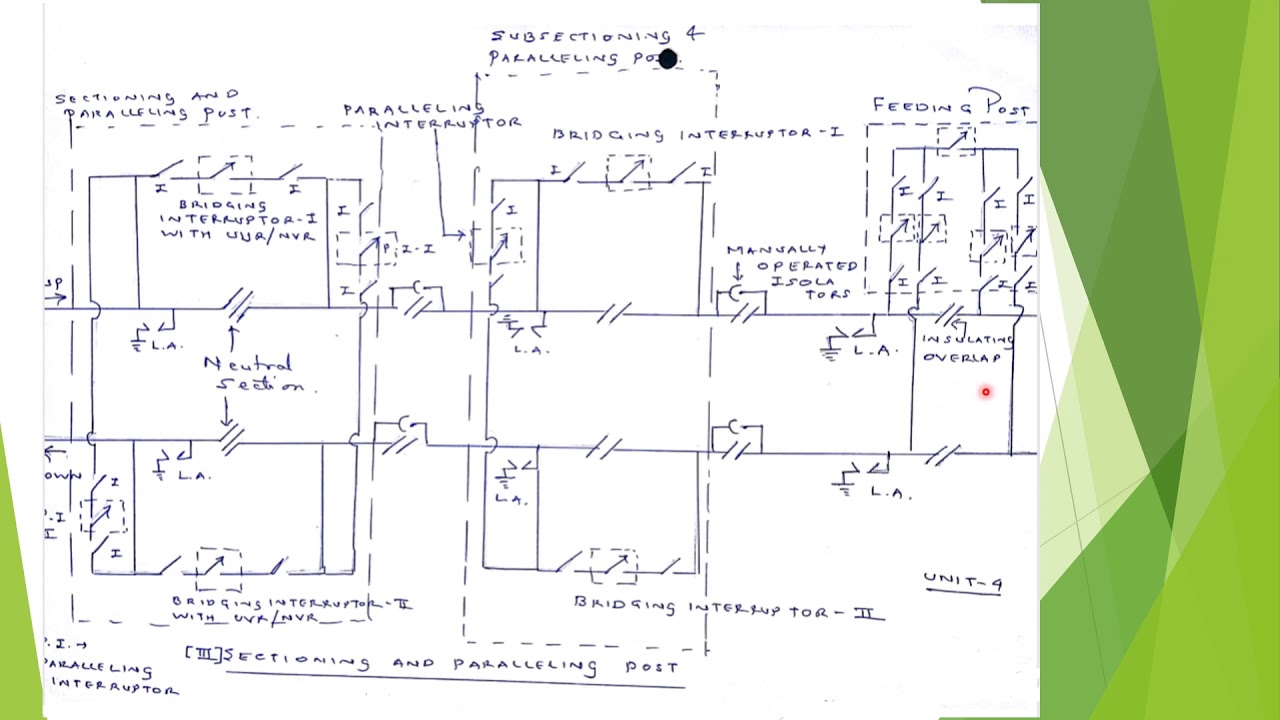 SUBSECTIONING &
PARALLELING PO
SECTIONING AND
PARALLELING POST.
PARALLELING
INTERRUPTOR
FEEDING POST
BRIDGING INTERRUPTOR-I
I
I
I
I
BRIDGING
INTERRUPTOR-I
WITH UVR/NVR
I
P.I-I
I
I
I
I
I
I
MANUALLY
OPERATED
ISOLA
TORS
I
I
I
I
L.A.
L.A.
L.A.
INSULATING
OVERLAP
Neutral
Section.
L.A.
L.A.
L.A.
OWN
I
.I
I
I
BRIDGING INTERRUPTOR-II
WITH UVR/NVR
BRIDGING INTERRUPTOR-II
UNIT-4
.I.→
PARALLELING
INTERRUPTOR
[III] SECTIONING AND PARALLELING POST